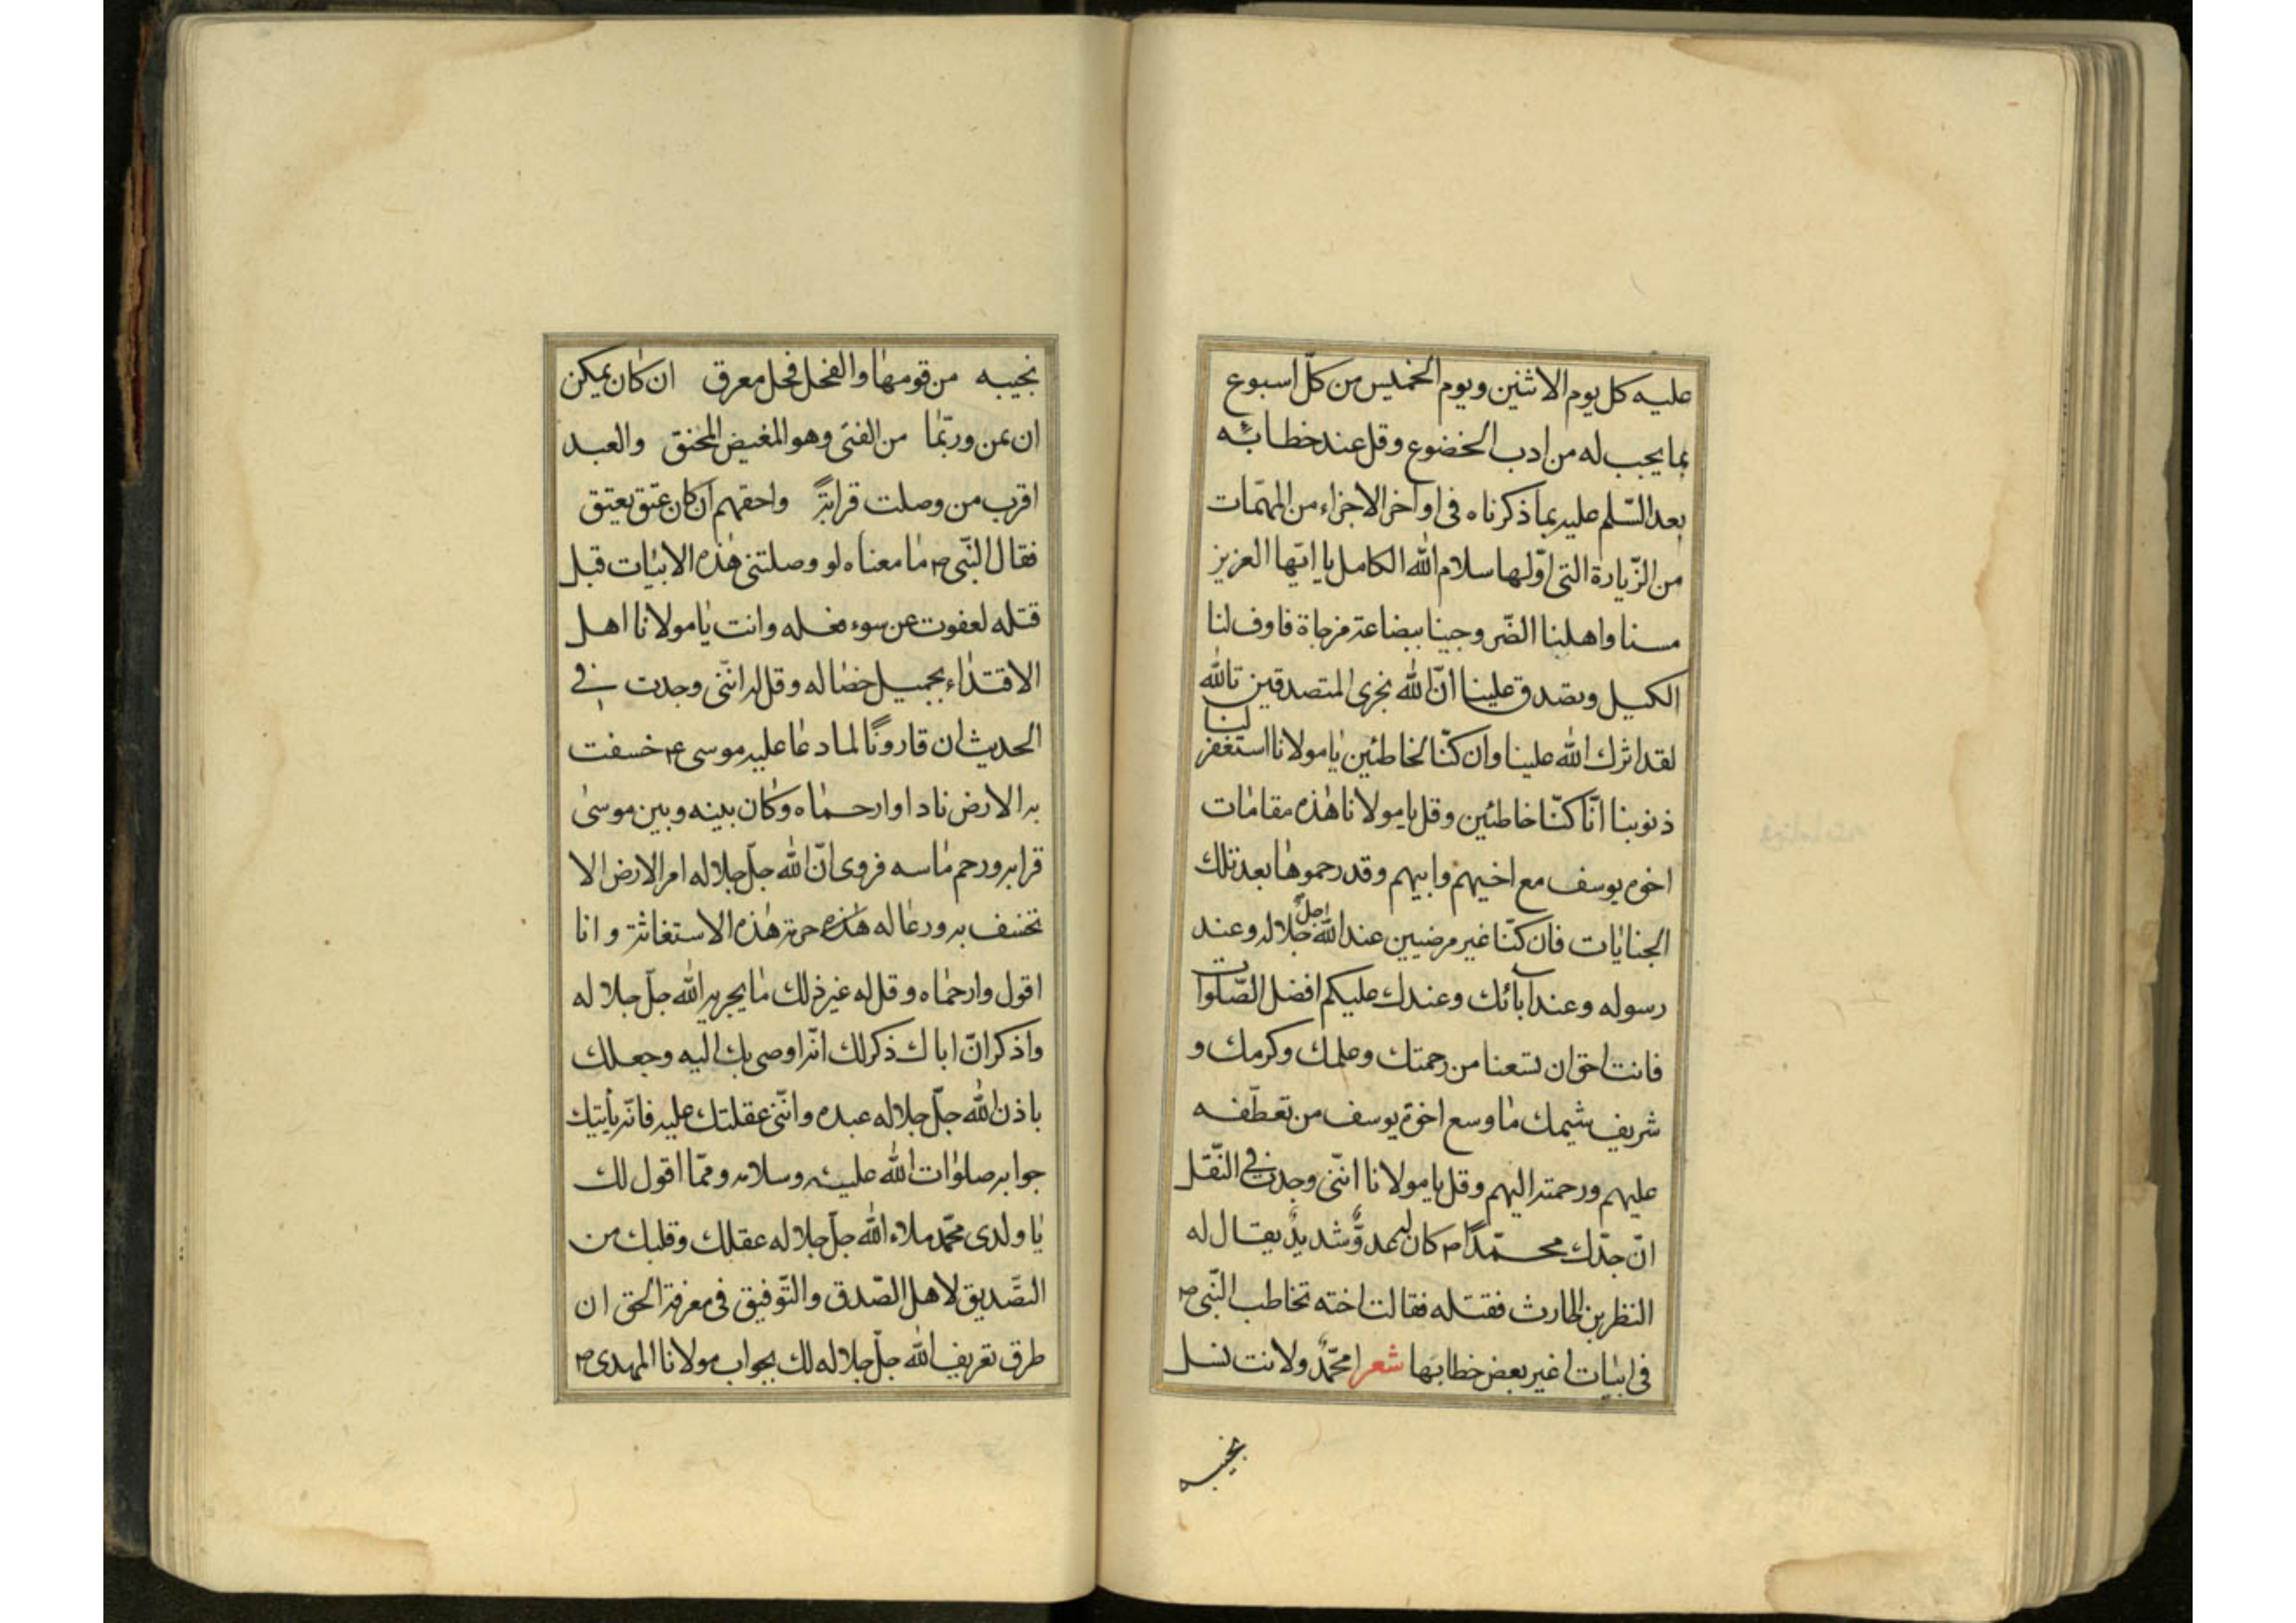 عليه كل يوم الاثنين ويوم الخميس من كلّ اسبوع
بما يجب له من ادب الخضوع وقل عند خطابه
بعد السّلم عليه بما ذكرناه فى اواخر الاجزاء من المهمّات
من الزّيارة التى اوّلها سلام الله الكامل يا ايّها العزيز
مسنا واهلنا الضّر وجينا ببضاعة مزجاة فاوف لنا
الكيل وتصدق علينا انّ الله يجزى المتصدقين تالله
لقد اثرك الله علينا وان كنّا لخاطئين يا مولانا استغفر لنا
ذنوبنا انّا كنّا خاطئين وقل يا مولانا هذه مقامات
اخوه يوسف مع اخيهم وابيهم وقد رحموها بعد تلك
الجنايات فان كنّا غير مرضيين عند الله جلّ جلاله وعند
رسوله وعند آبائك وعندك عليكم افضل الصّلوات
فانت احق ان تسعنا من رحمتك وحلمك وكرمك و
شريف شيمك ما وسع اخوة يوسف من تعطّفه
عليهم ورحمته اليهم وقل يا مولانا انّنى وجدت فى النّقل
انّ جدّك محمّدًا ص كان له عدوٌّ شديدٌ يقال له
النظر بن الحارث فقتله فقالت اخته تخاطب النّبى ص
فى ابيات اغير بعض خطابها شعر امحمّدٌ ولانت نسل
نجيبه
نجيبه من قومها والفحل فحل معرق ان كان يمكن
ان يمن وربّما من الفتى وهو المغيض المحنق والعبد
اقرب من وصلت قرابةً واحقهم ان كان عتق يعتق
فقال النّبى ص ما معناه لو وصلتنى هذه الابيات قبل
قتله لعفوت عن سوء فعله وانت يا مولانا اهل
الاقتداء بجميل خصاله وقل له انّنى وجدت فى
الحديث ان قارونًا لما دعا عليه موسى ع خسفت
به الارض نادا وارحماه وكان بينه وبين موسى
قرابه ورحم ماسه فروى انّ الله جلّ جلاله امر الارض الا
تخسف به ورعا له هذه حرمة هذه الاستغاثة وانا
اقول وارحماه وقل له غير ذلك ما يجريه الله جلّ جلاله
واذكر انّ اباك ذكر لك انّه اوصى بك اليه وجعلك
باذن الله جلّ جلاله عبده وانّنى عقلتك عليه فانّه يأتيك
جوابه صلوات الله عليه وسلامه وممّا اقول لك
يا ولدى محمّد ملاء الله جلّ جلاله عقلك وقلبك من
التصّديق لاهل الصّدق والتّوفيق فى معرفة الحق ان
طرق تعريف الله جلّ جلاله لك بجواب مولانا المهدى ص